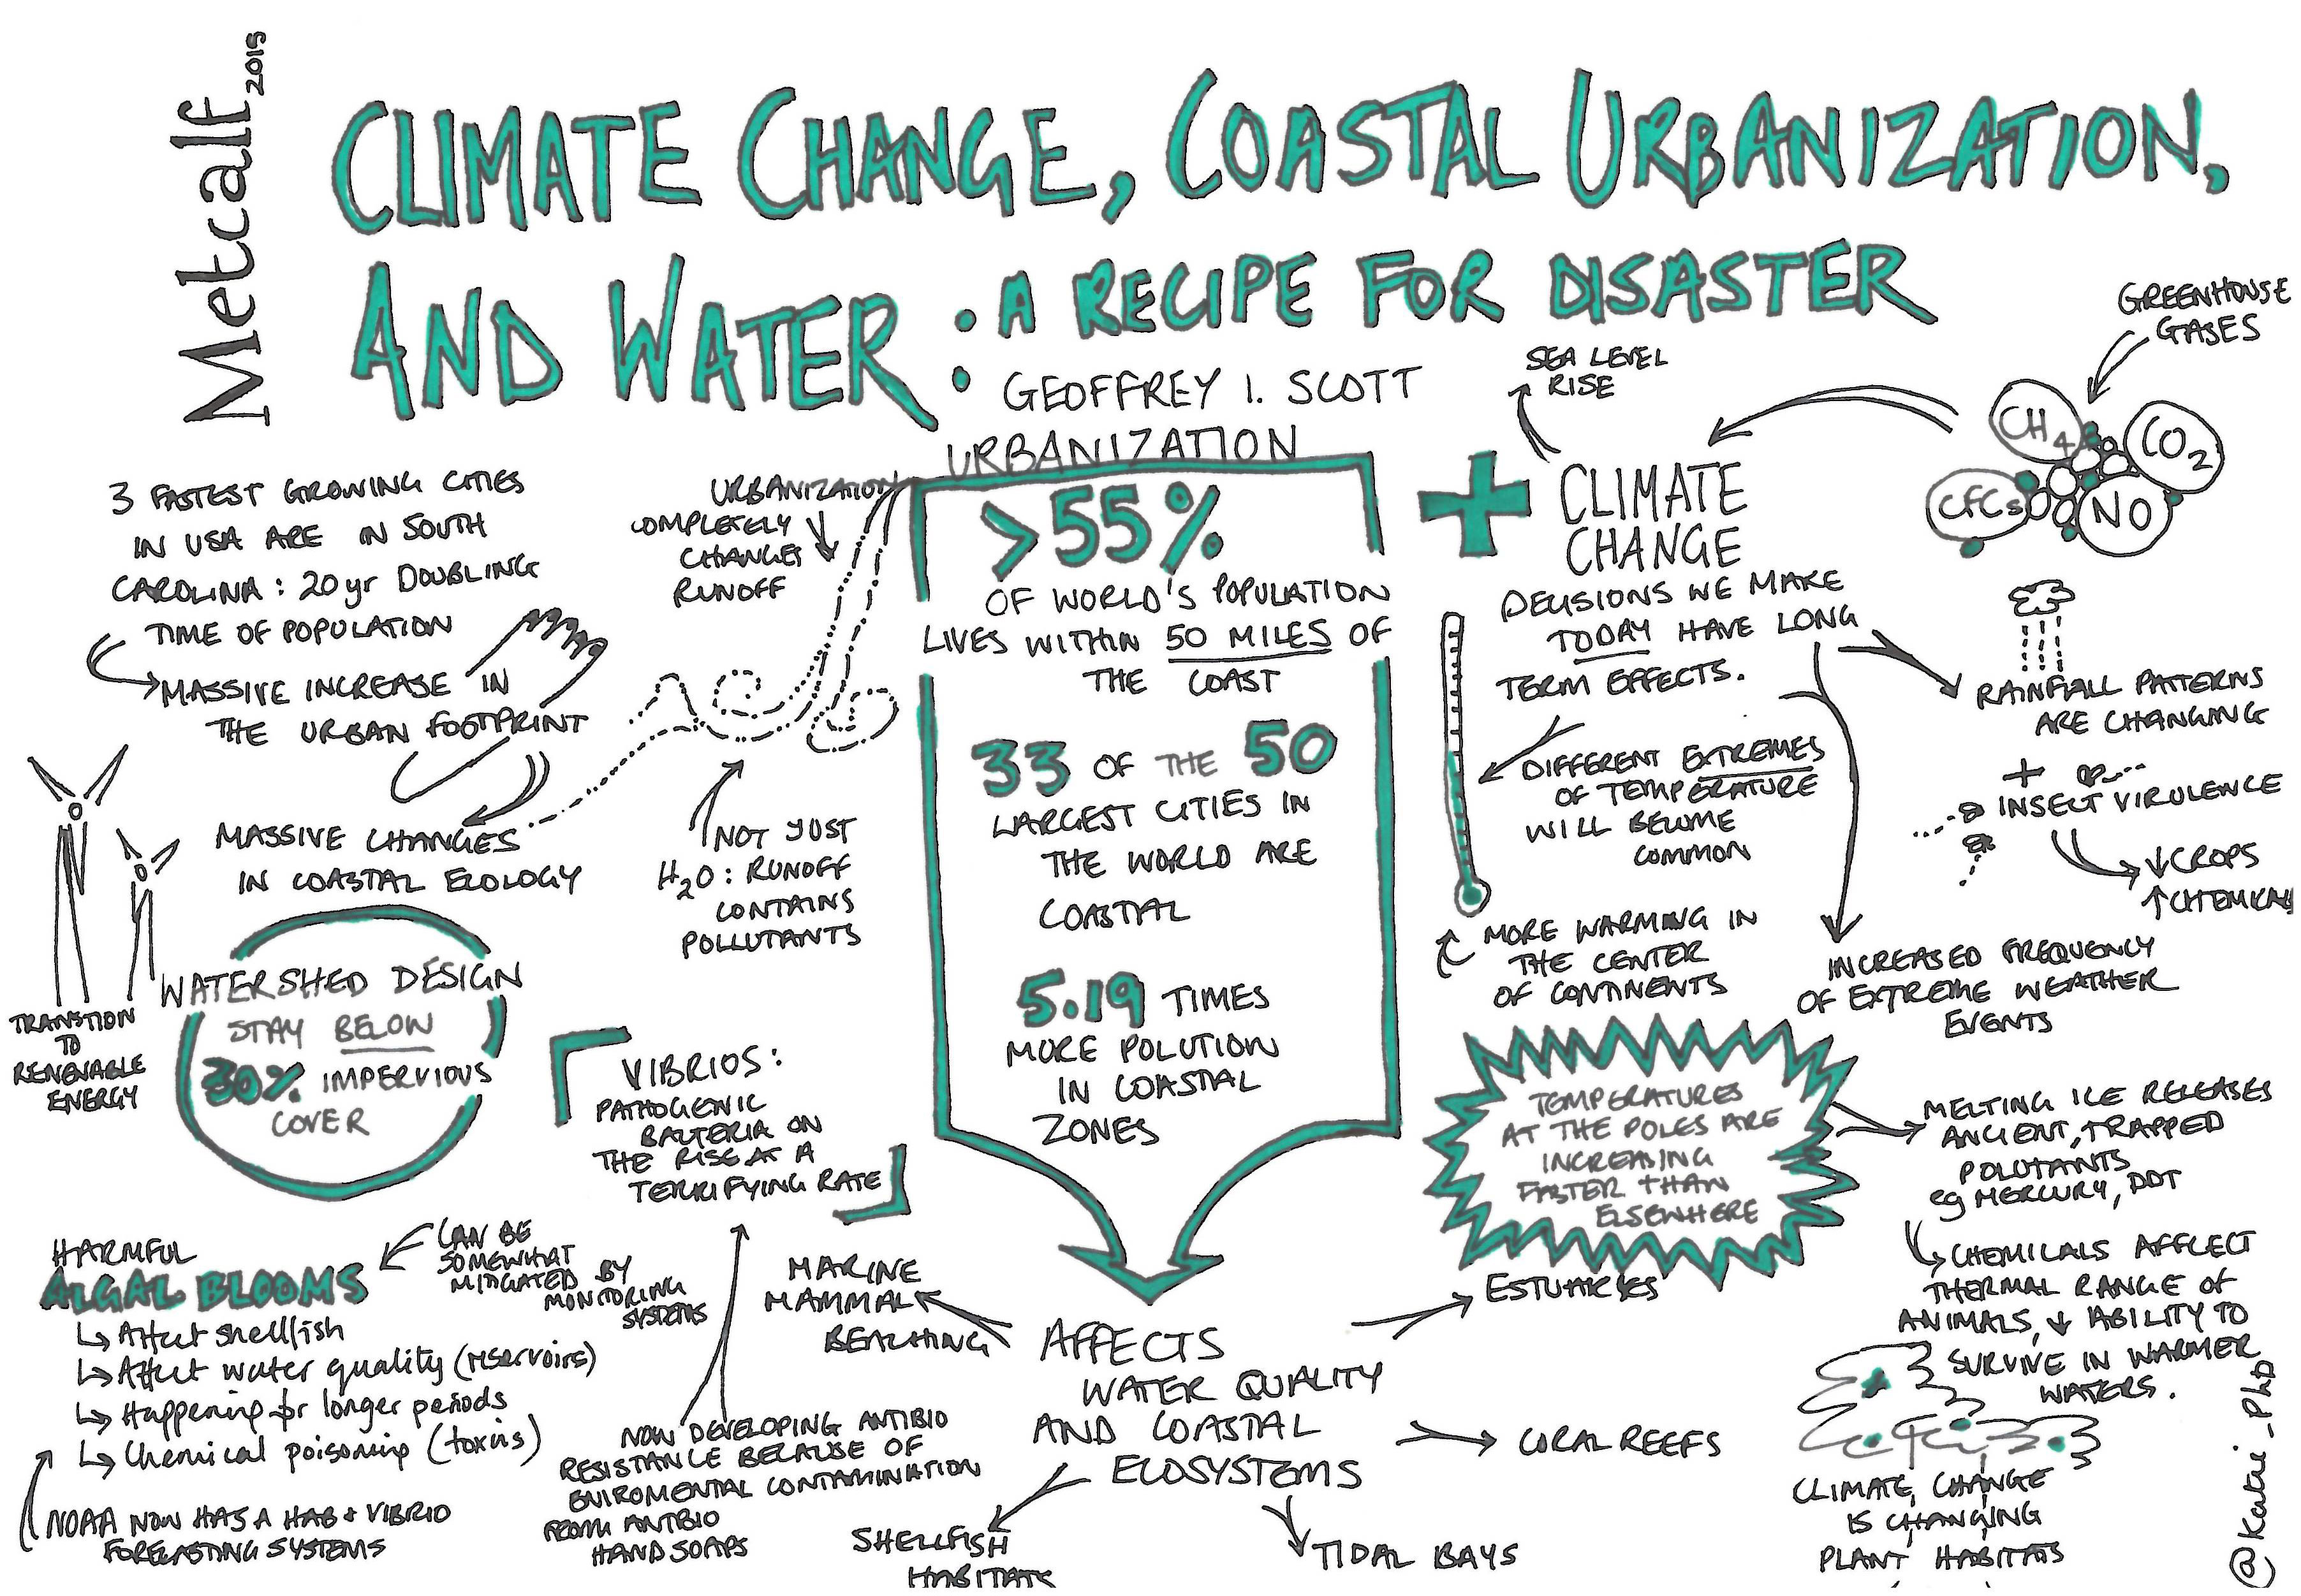 Metcalf 2015
CLIMATE CHANGE, COASTAL URBANIZATION,
AND WATER : A RECIPE FOR DISASTER
GEOFFREY I. SCOTT
3 FASTEST GROWING CITIES
IN USA ARE IN SOUTH
CAROLINA : 20 yr DOUBLING
TIME OF POPULATION
MASSIVE INCREASE IN
THE URBAN FOOTPRINT
MASSIVE CHANGES
IN COASTAL ECOLOGY
TRANSTION
TO
RENEWABLE
ENERGY
WATERSHED DESIGN
STAY BELOW
30% IMPERVIOUS
COVER
URBANIZATION
COMPLETELY
CHANGES
RUNOFF
NOT JUST
H2O : RUNOFF
CONTAINS
POLLUTANTS
VIBRIOS :
PATHOGENIC
BACTERIA ON
THE RISE AT A
TERRIFYING RATE
NOW DEVELOPING ANTIBIO
RESISTANCE BECAUSE OF
ENIROMENTAL CONTAMINATION
FROM ANTIBIO
HAND SOAPS
HARMFUL
ALGAL BLOOMS
CAN BE
SOMEWHAT
MITIGATED BY
MONITORING
SYSTEMS
Affect shellfish
Affect water quality (reservoirs)
Happening for longer periods
Chemical poisoning (toxins)
NOAA NOW HAS A HAB + VIBRIO
FORECASTING SYSTEMS
URBANIZATION
>55%
OF WORLD'S POPULATION
LIVES WITHIN 50 MILES OF
THE COAST
33 OF THE 50
LARGEST CITIES IN
THE WORLD ARE
COASTAL
5.19 TIMES
MORE POLUTION
IN COASTAL
ZONES
AFFECTS
WATER QUALITY
AND COASTAL
ECOSYSTEMS
MARINE
MAMMAL
BEACHING
SHELLFISH
HABITATS
TIDAL BAYS
CORAL REEFS
ESTUARIES
+
SEA LEVEL
RISE
CLIMATE
CHANGE
DECISIONS WE MAKE
TODAY HAVE LONG
TERM EFFECTS.
GREENHOUSE
GASES
CH4
CO2
CFCs
NO
DIFFERENT EXTREMES
OF TEMPERATURE
WILL BECOME
COMMON
MORE WARMING IN
THE CENTER
OF CONTINENTS
RAINFALL PATTERNS
ARE CHANGING
+
INSECT VIRULENCE
↓ CROPS
↑ CHEMICALS
INCREASED FREQUENCY
OF EXTREME WEATHER
EVENTS
TEMPERATURES
AT THE POLES ARE
INCREASING
FASTER THAN
ELSEWHERE
MELTING ICE RELEASES
ANCIENT, TRAPPED
POLUTANTS
eg MERCURY, DDT
CHEMICALS AFFLECT
THERMAL RANGE OF
ANIMALS, ↓ ABILITY TO
SURVIVE IN WARMER
WATERS.
CLIMATE CHANGE
IS CHANGING
PLANT HABITATS
@Katie_PhD